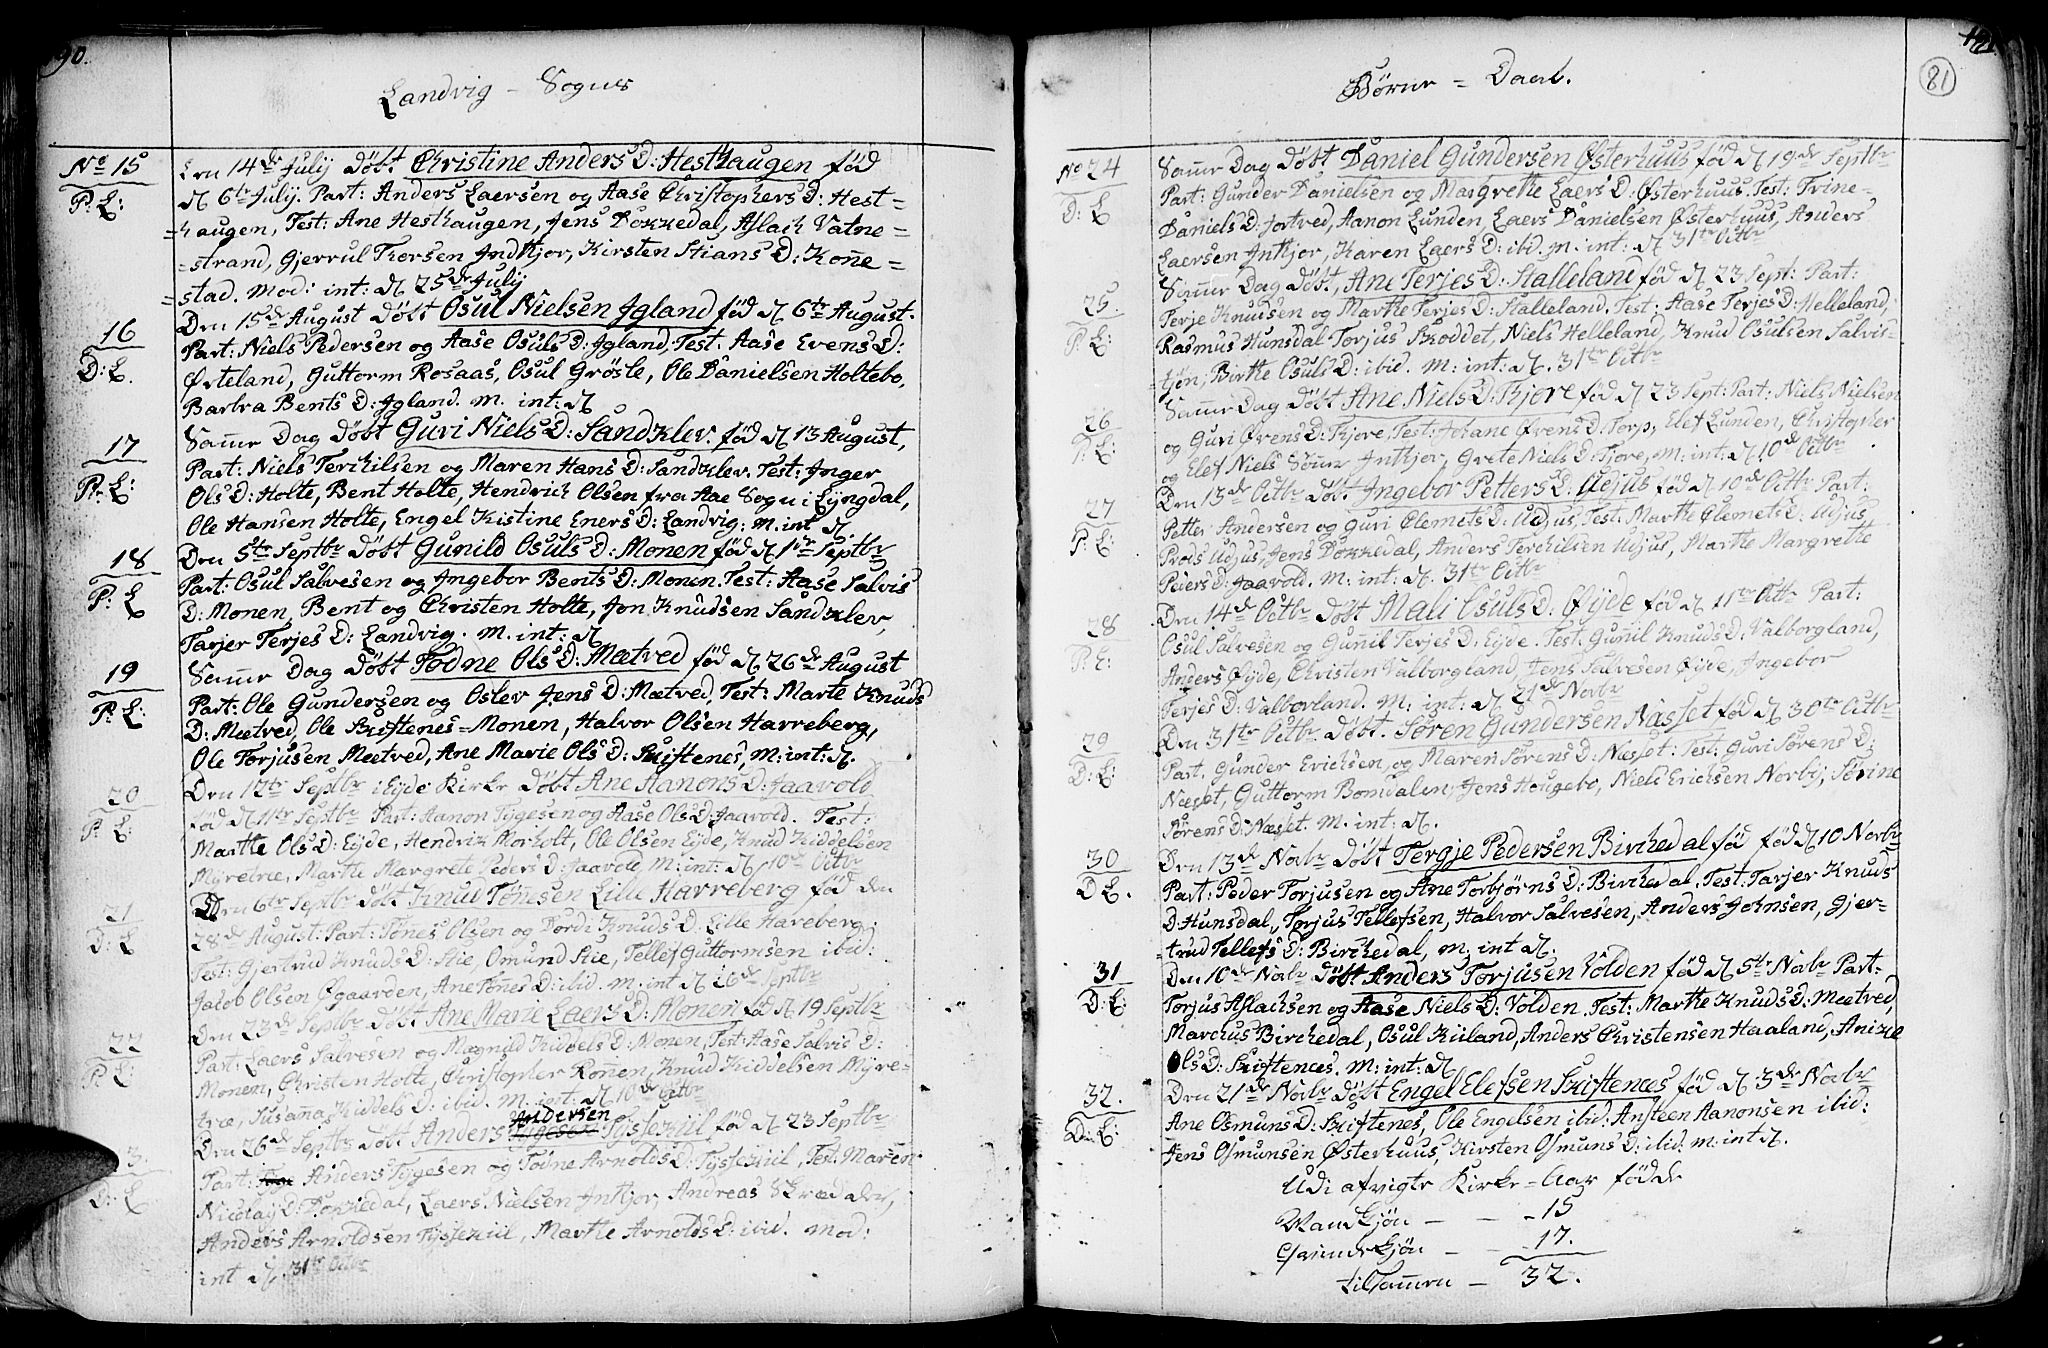 90.
Landvig - Sogns
No 15
P: L:
Den 14de July döbt Christine AndersD: Hesthaugen föd
d 6te July. Part: Anders Laersen og Aase ChristophersD: Hest=
=haugen, Test: Ane Hesthaugen, Jens Dokkedal, Aslach Vatne=
=strand, Gjerrul Thorsen Indthjor, Kirsten StiansD: Kone=
=stad. Mod: int: d 25de July
16
D: L.
Den 15de August döbt Osul Nielsen Igland föd d 6te August.
Part: Niels Pedersen og Aase OsulsD: Igland, Test. Aase EvensD:
Østeland, Guttorm Rosaas, Osul Grösle, Ole Danielsen Holtebo,
Barbra BentsD: Igland. m. int: d
17
P: L:
Same Dag döbt Guri NielsD: Sandklev. föd d 13 August,
Part: Niels Terchilsen og Maren HansD: Sandklev. Test: Inger
OlsD: Holte, Bent Holte, Hendrich Olsen fra Aae Sogn i Lyngdal,
Ole Hansen Holte, Engel Kistine EnersD: Landvig: m. int d.
18
P: L
Den 5te Septbr döbt Gunild OsulsD: Monen föd d 1te Septbr
Part: Osul Salvesen og Ingebor BentsD: Monen. Test: Aase Salvis
D: Monen, Bent og Christen Holte, Jon Knudsen Sandklev,
Tarjer TerjesD: Landvig. m. int: d
19
P: L:
Same Dag döbt Todne OlsD: Mætved föd d 26de August
Part: Ole Gundersen og Oslev JensD: Mætved, Test: Marte Knuds
D: Mætved, Ole Skiftenes=Monen, Halvor Olsen Harreberg,
Ole Torjusen Mætved, Ane Marie OlsD: Skiftenes, m: int: d.
20
P: L:
Den 12te Septbr i Eyde Kirke döbt Ane AanonsD: Jaavold
föd d 11te Septbr Part: Aanon Tygesen og Aase OlsD: Jaavold. Test:
Marthe OlsD: Eyde, Hendrik Morholt, Ole Olsen Eyde, Knud Kiddelsen
Myretræe, Marthe Margrete PedersD: Jaavold, m: int: d 10de Octbr
21
D: L
Den 6te Septbr döbt Knud Tönesen Lille Harreberg föd den
28de August: Part: Tönes Olsen og Dordi KnudsD: Lille Hareberg
Test: Gjertrud KnudsD: Stie, Omund Stie, Tellef Guttormsen ibid:
Jacob Olsen Øgaarden, Ane TönesD: ibid. m. int d 26de Septbr
22
P: L:
Den 23de Septbr döbt Ane Marie LaersD: Monen föd d 19 Septbr
Part: Laers Salvesen og Magnild KiddelsD: Monen, Test Aase SalvisD:
Monen, Christen Holte, Christopher Ronen, Knud Kiddelsen Myre=
træe, Susana KiddelsD: ibid. m. int: d 10de Octbr
3.
D: L.
Andersen
Den 26de Septbr döbt Anders Tygesen Tyssekiil föd d 23 Septbr
Part: Anders Tygesen og Todne ArnoldsD: Tyssekiil, Test: Maren
NicolayD: Dokkedal, Laers Nielsen Inthjor, Andreas Skrædder,
Anders Arnoldsen Tyssekiil, Marthe ArnoldsD: ibid. mod:
int d. 31te Octbr
81
Börne = Daab.
No 24
D: L
Same Dag döbt Daniel Gundersen Østerhuus föd d 19de Septbr
Part: Gunder Danielsen og Margrethe LaersD: Østerhuus. Test: Trine=
DanielsD: Jortved, Aanon Lunden, Laers Danielsen Østerhuus, Anders
Laersen Inthjor, Karen LaersD: ibid. m. int: d 31te Octbr
25.
P: L:
Same Dag döbt, Ane TerjesD: Stalleland föd d 23 Sept: Part:
Terje Knudsen og Marthe TerjesD: Stalleland. Test: Aase TerjesD: Helleland,
Rasmus Hunsdal Torjus Broddet, Niels Helleland, Knud Osulsen Salvis=
tjön, Birthe OsulsD: ibid. m: int: d. 31te Octbr
26
P: L:
Same Dag döbt Ane NielsD: Fjore föd d 23 Sept: Part: Niels Nielsen
og Guri ØvensD: Fjore, Test: Johane ØvensD: Torp, Elef Lunden, Christopher
og Elef Niels Sönner Inthjor, Grete NielsD: Fjore, m: int: d 10de Octbr
27
P: L:
Den 13de Octbr döbt Ingebor PettersD: Udjus föd d 10de Octbr Part:
Petter Andersen og Guri ClemetsD: Udjus, Test: Marthe ClemetsD: Udjus
Proes Udjus, Jens Dokkedal, Anders Terchilsen Udjus, Marthe Margrethe
PeiersD: Jaavold. m: int: d. 31te Octbr
28
P. L:
Den 14de Octbr döbt Mali OsulsD: Øyde föd d 11te Octbr Part:
Osul Salvesen og Gunil TerjesD: Eyde. Test: Gunil KnudsD: Valborgland,
Anders Øyde, Christen Valborgland, Jens Salvesen Øyde, Ingebor
TerjesD: Valborland. m: int: d 21de Novbr
29
D: L:
Den 31te Octbr döbt. Sören Gundersen Næsset föd d 30te Octbr
Part, Gunder Erichsen, og Maren SörensD: Næsset: Test: Guri SörensD:
Næset, Guttorm Bomdalen, Jens Hougebo, Niels Erichsen Norbÿ, Sörine
SörensD: Næsset. m. int: d.
30
D L.
Den 13de Novbr döbt Tergje Pedersen Birchedal föd föd d 10 Novbr
Part: Peder Torjusen og Ane TorbjörnsD: Birchedal, Test: Tarjer Knuds
D: Hunsdal, Torjus Tellefsen, Halvor Salvesen, Anders Johnsen, Gjer=
=trud TellefsD: Birchedal, m. int d.
31
D: L:
Den 16de Novbr döbt Anders Torjusen Volden föd d 5te Novbr Part=
Torjus Aslachsen og Aase NielsD: Volden. Test: Marthe KnudsD: Mætved,
Marchus Birchedal, Osul Kiiland, Anders Christensen Haaland, Anikle
OlsD: Skiftenes. m: int: d
32.
D: L:
Den 21de Novbr döbt Engel Elefsen Skiftenes föd d 3de Novbr
Ane OsmunsD: Skiftenes, Ole Engelsen ibid: Ansteen Aanonsen ibid:
Jens Osmunsen Østerhuus, Kirsten OsmunsD: ibid: m: int d.
Udi afvigte Kirke=Aar födde
Mandkjön — — 15
Qvindekjön — — 17.
tilsamen — 32.